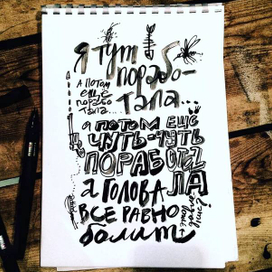 Я ТУТ
порабо-
тала...
А ПОТОМ
ЕЩЕ
ПОРАБО
ТАЛА...
а ПОТОМ ЕЩЕ
ЧУТЬ-ЧУТЬ
ПОРАБОТА
ЛА
а ГОЛОВА
ВСЕ РАВНО
болит